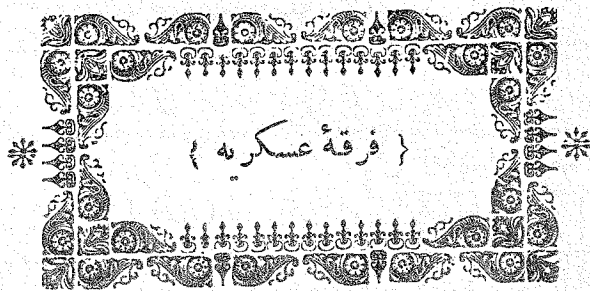 { فرقهٔ عسكريه }